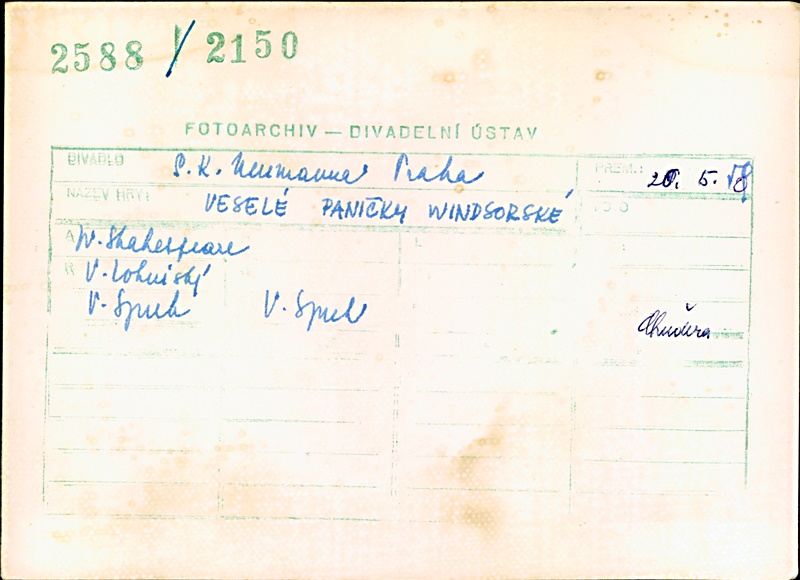 2588 / 2150
FOTOARCHIV — DIVADELNÍ ÚSTAV
DIVADLO S. K. Neumanna Praha PREM.: 20. 5.
NÁZEV HRY: VESELÉ PANIČKY WINDSORSKÉ FOTO
A W. Shakespeare L
R V. Lohniský
V. Špuch V. Špuch